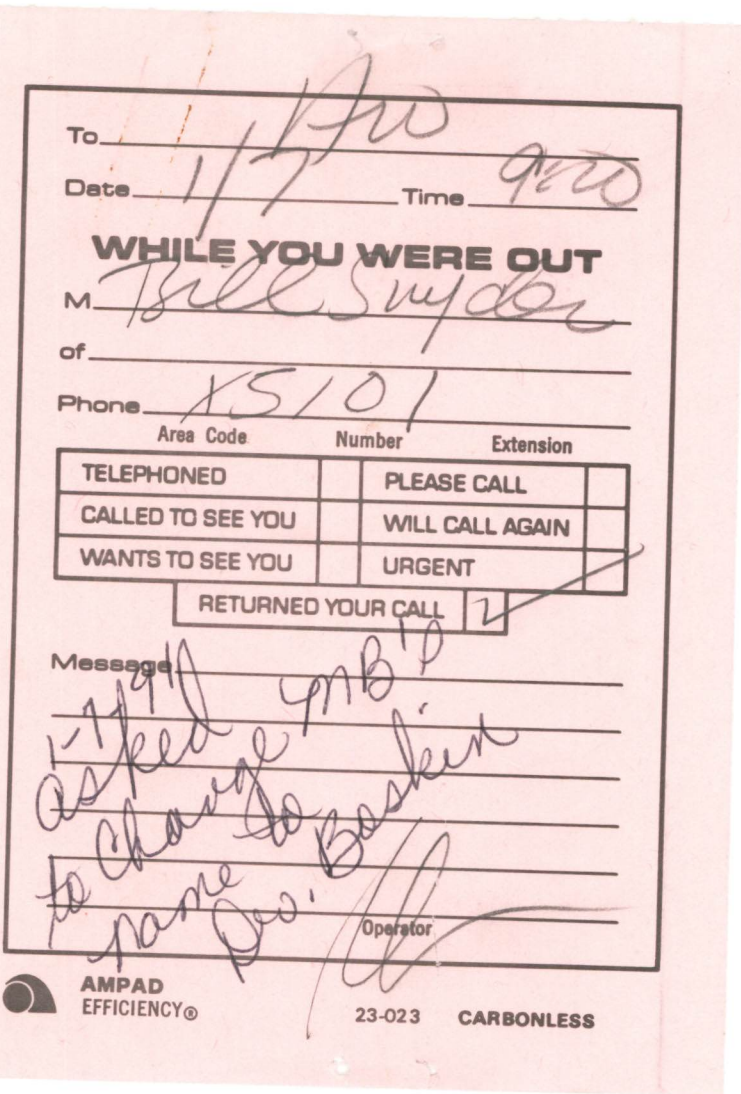 To Dro
Date 1/7 Time 9:20
WHILE YOU WERE OUT
M Bill Snyder
of
Phone X5101
Area Code Number Extension
TELEPHONED PLEASE CALL
CALLED TO SEE YOU WILL CALL AGAIN
WANTS TO SEE YOU URGENT
RETURNED YOUR CALL
Message
1-7-91
asked
to change MB's
name to
Dro. Baskin
Operator
AMPAD
EFFICIENCY®
23-023 CARBONLESS